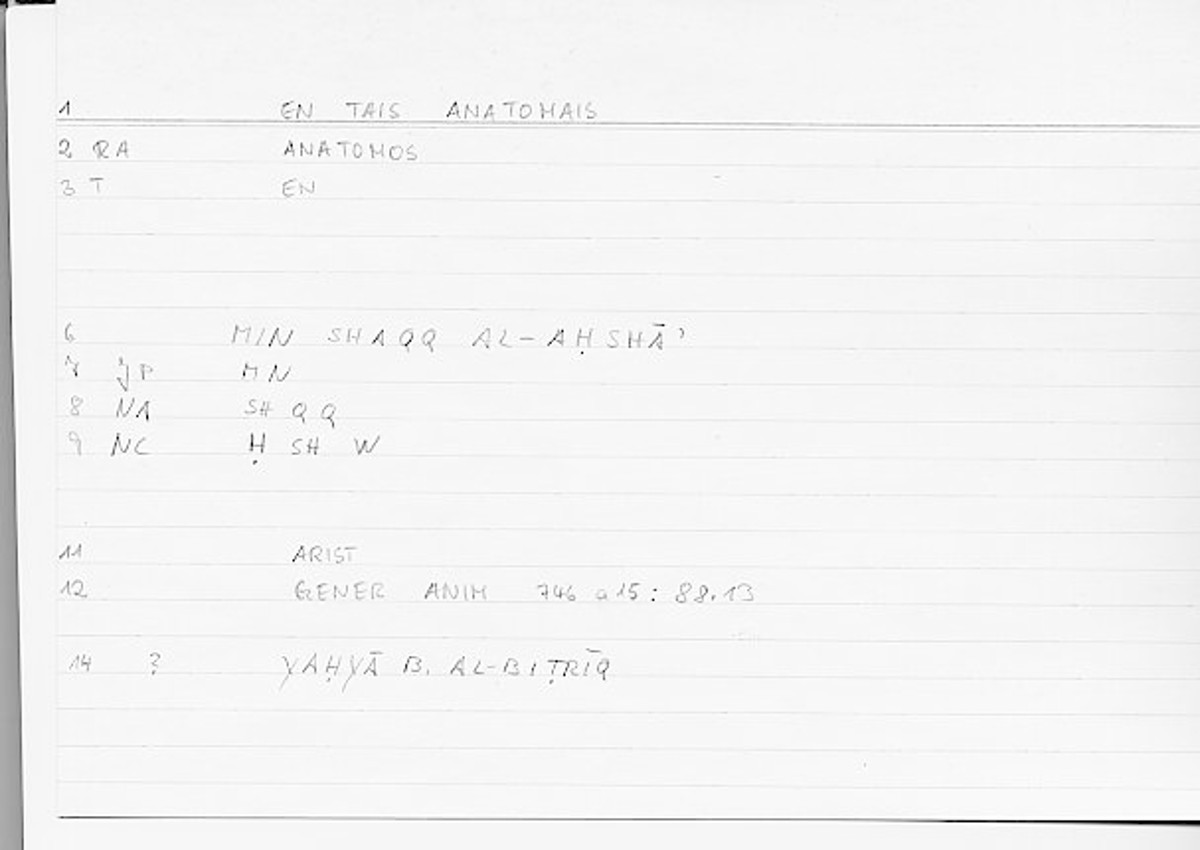 1 EN TAIS ANATOMAIS
2 RA ANATOMOS
3 T EN
6 MIN SHAQQ AL-AḤSHĀʾ
7 JP MN
8 NA SH Q Q
9 NC Ḥ SH W
11 ARIST
12 GENER ANIM 746 a15: 88.13
14 ? YAḤYĀ B. AL-BIṬRĪQ